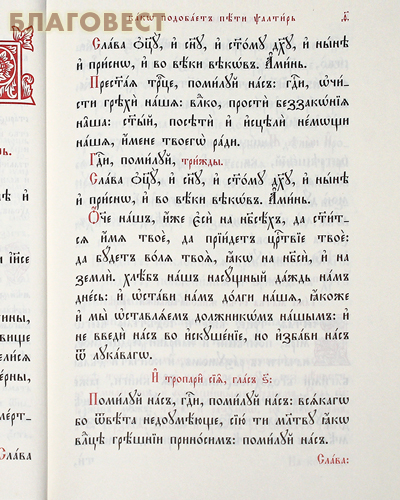 БЛАГОВЕСТ
ка́кѡ подоба́етъ пѣ́ти ѱалти́рь
Сла́ва ѻ҆ц҃ꙋ̀, и҆ сн҃ꙋ, и҆ ст҃о́мꙋ дх҃ꙋ, и҆ ны́нѣ
и҆ при́снѡ, и҆ во вѣ́ки вѣкѡ́въ. А҆ми́нь.
Прест҃а́ѧ трⷪ҇це, поми́лꙋй на́съ: гдⷭ҇и, ѡ҆чи́-
сти грѣхѝ на́шѧ: влⷣко, простѝ беззакѡ́нїѧ
на́ша: ст҃ы́й, посѣтѝ и҆ и҆сцѣлѝ не́мѡщи
на́шѧ, и҆́мене твоегѡ̀ ра́ди.
Гдⷭ҇и, поми́лꙋй, три́жды.
Сла́ва ѻ҆ц҃ꙋ̀, и҆ сн҃ꙋ, и҆ ст҃о́мꙋ дх҃ꙋ, и҆ ны́нѣ
и҆ при́снѡ, и҆ во вѣ́ки вѣкѡ́въ. А҆ми́нь.
Ѻ҆́ч҃е на́шъ, и҆́же є҆сѝ на нб҃сѣ́хъ, да ст҃и́т-
сѧ и҆́мѧ твоѐ, да прїи́детъ црⷭ҇твїе твоѐ:
да бꙋ́детъ во́лѧ твоѧ̀, ꙗ҆́кѡ на нб҃сѝ, и҆ на
землѝ. хлѣ́бъ на́шъ насꙋ́щный да́ждь на́мъ
дне́сь: и҆ ѡ҆ста́ви на́мъ до́лги на́шѧ, ꙗ҆́коже
и҆ мы̀ ѡ҆ставлѧ́емъ должникѡ́мъ на́шымъ: и҆
не введѝ на́съ во и҆скꙋше́нїе, но и҆зба́ви на́съ
ѿ лꙋка́вагѡ.
И҆ тропарѝ сїѧ̑, гла́съ ѕ҃:
Поми́лꙋй на́съ, гдⷭ҇и, поми́лꙋй на́съ: всѧ́кагѡ
бо ѿвѣ́та недоꙋмѣ́юще, сїю́ ти мл҃твꙋ ꙗ҆́кѡ
влⷣцѣ грѣ́шнїи прино́симъ: поми́лꙋй на́съ.
Сла́ва: